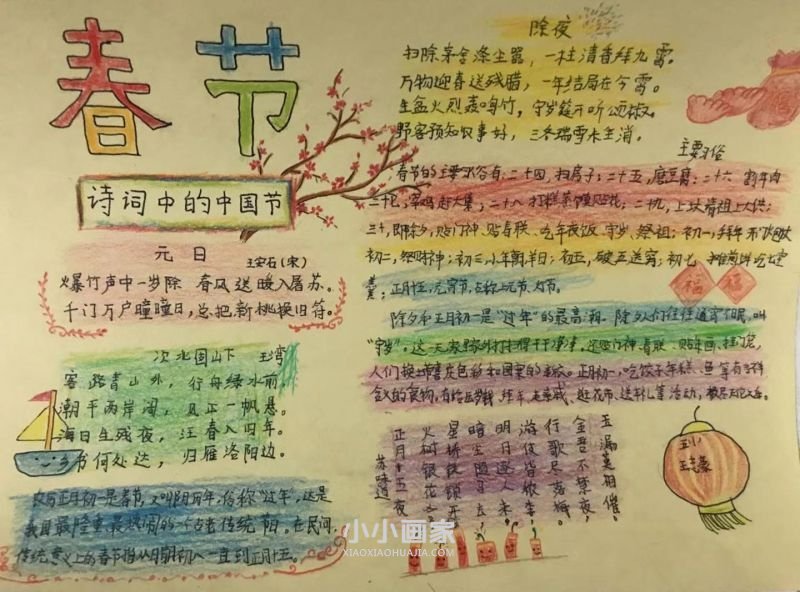 春节
诗词中的中国节
元日
王安石(宋)
爆竹声中一岁除 春风送暖入屠苏。
千门万户曈曈日,总把新桃换旧符。
次北固山下 王湾
客路青山外,行舟绿水前。
潮平两岸阔,风正一帆悬。
海日生残夜,江春入旧年。
乡书何处达,归雁洛阳边。
农历正月初一是春节,又叫阴历年,俗称“过年”,这是
我国最隆重、最热闹的一个古老传统节日。在民间,
传统意义上的春节指从腊月初八一直到正月十五。
除夜
扫除茅舍涤尘嚣,一炷清香拜九霄。
万物迎春送残腊,一年结局在今宵。
生盆火烈轰鸣竹,守岁筵开听颂椒。
野客预知农事好,三冬瑞雪未全消。
主要习俗
春节的主要习俗有:二十四,扫房子;二十五,磨豆腐;二十六 割年肉
二十七,宰鸡赶大集;二十八 打糕蒸馍贴花;二十九,上坟请祖上大供;
三十,即除夕,贴门神、贴春联、吃年夜饭、守岁、祭祖;初一,拜年
初二,祭财神;初三,小年朝羊日;初五,破五送穷;初七
正月十五,元宵节,古称上元节、灯节。
福 福
除夕和正月初一是“过年”的最高潮。除夕人们往往通宵不眠,叫
“守岁”。这一天家里家外打扫得干干净净,还贴门神、春联、贴年画、挂门笼,
人们换上带喜庆色彩和图案的新衣。正月初一,吃饺子、年糕、鱼等有吉祥
含义的食物,有给压岁钱、拜年、走亲戚、逛花市、送礼等活动,
玉漏莫相催。
金吾不禁夜,
行歌尽落梅。
游伎皆秾李,
明月逐人来。
暗尘随马去,
星桥铁锁开。
火树银花合,
正月十五夜
苏味道
小小画家
XIAOXIAOHUAJIA.COM